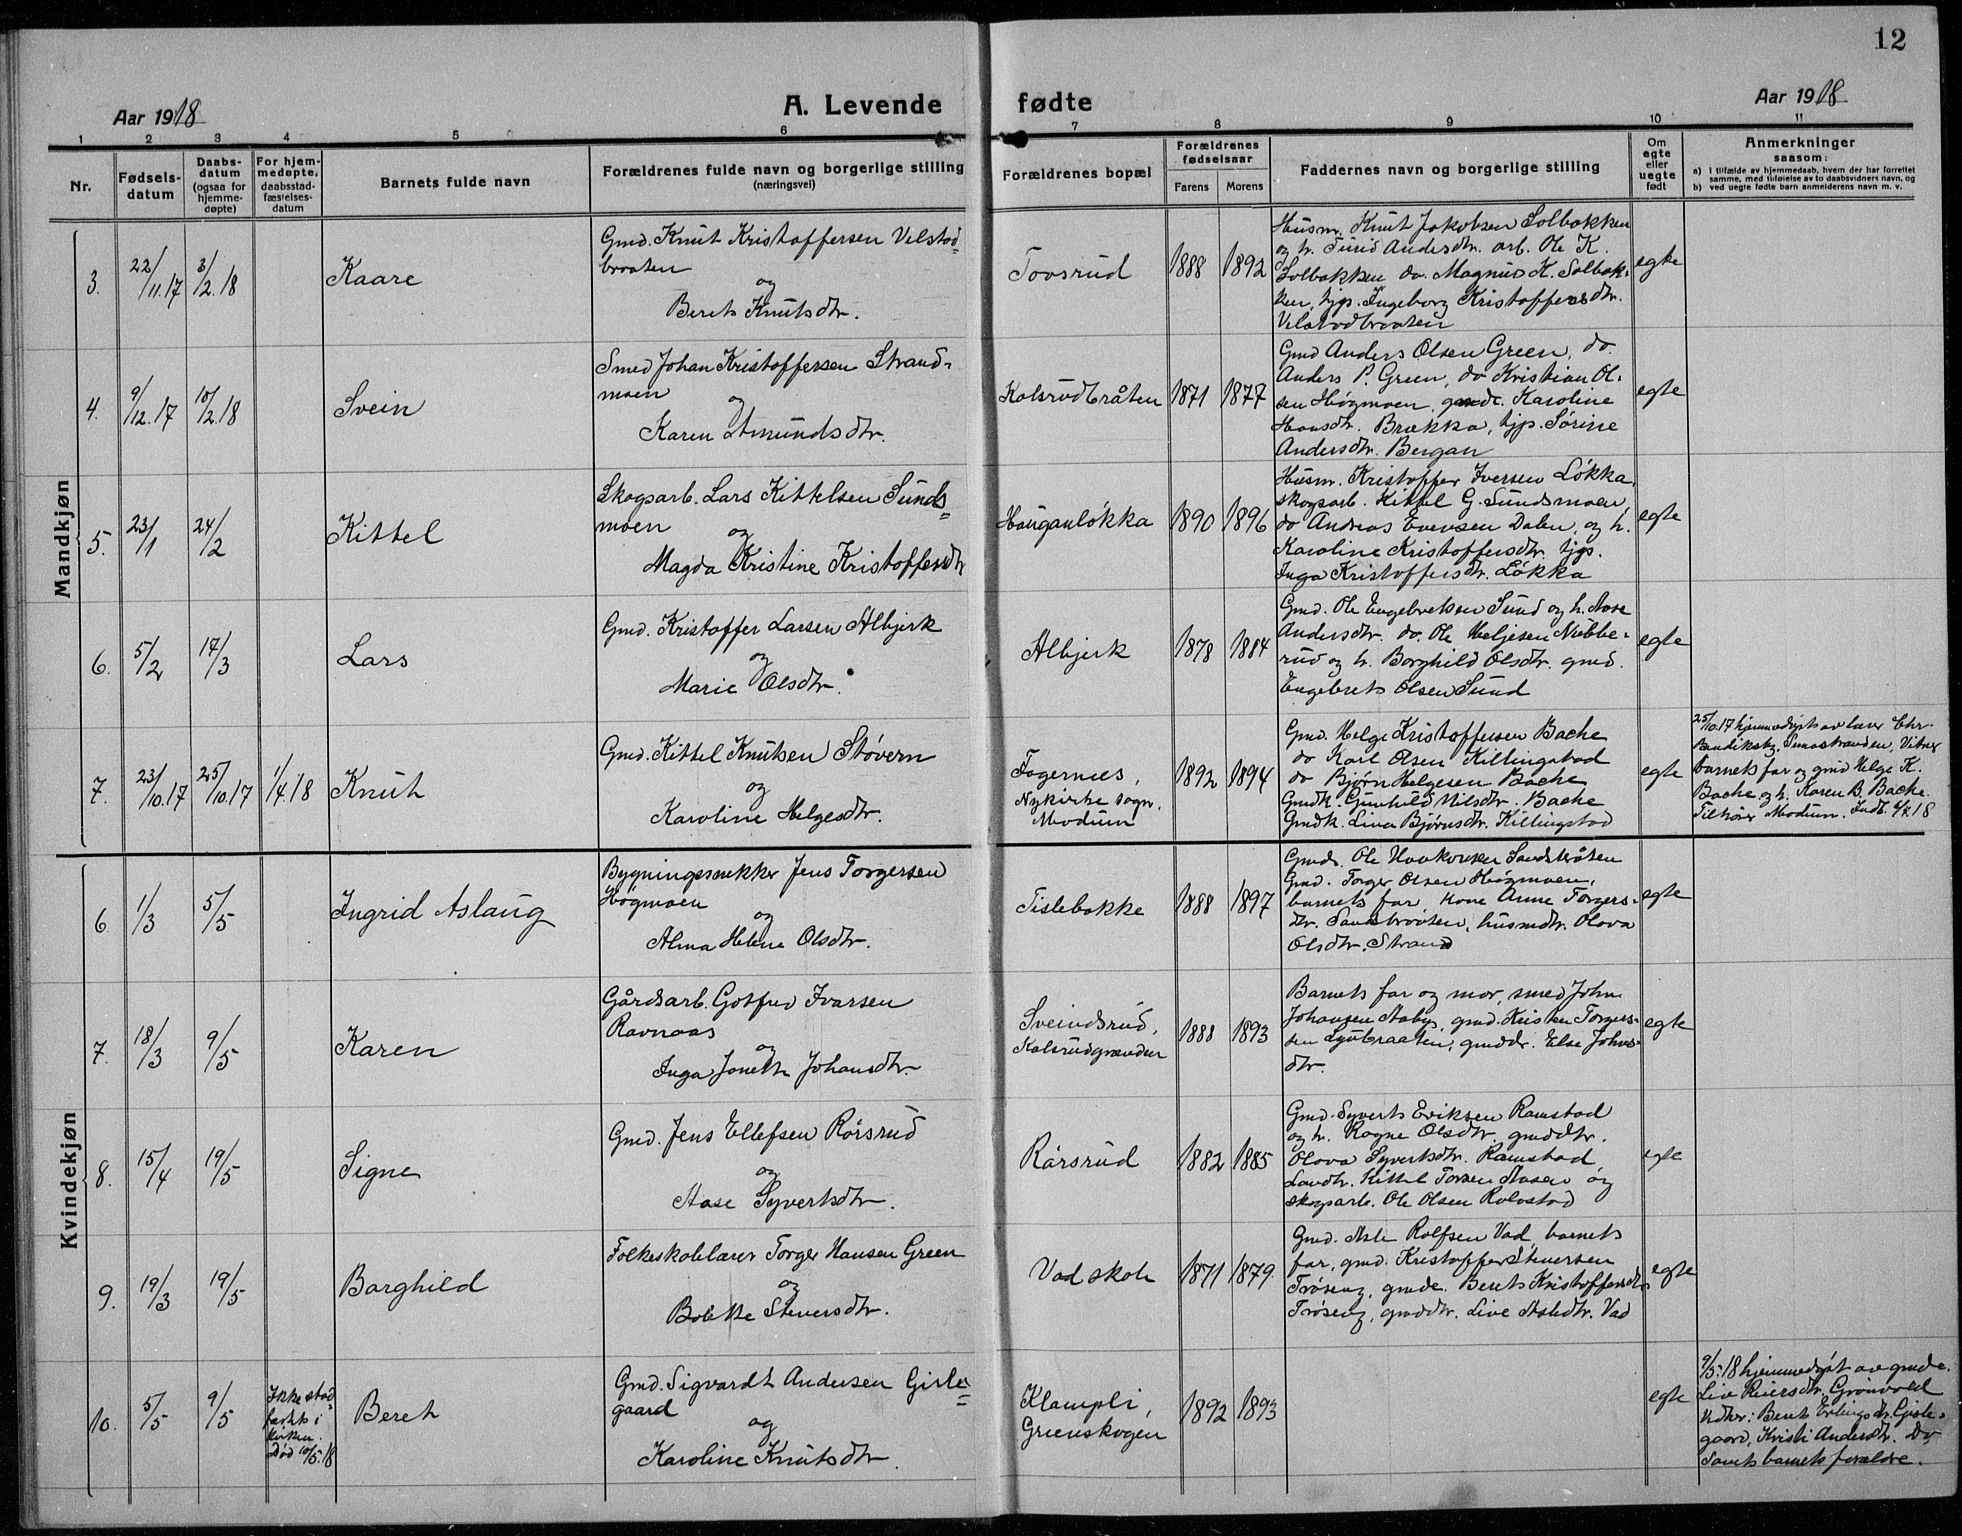 12
Aar 1918
A. Levende
fødte
Aar 1918
1 2 3 4 5 6 7 8 9 10 11
Nr.
Fødsels-
datum
Daabs-
datum
(ogsaa for
hjemme-
døpte)
For hjem-
medøpte,
daabsstad-
fæstelses-
datum
Barnets fulde navn
Forældrenes fulde navn og borgerlige stilling
(næringsvei)
Forældrenes bopæl
Forældrenes
fødselsaar
Farens Morens
Faddernes navn og borgerlige stilling
Om
egte
eller
uegte
født
Anmerkninger
saasom:
a) I tilfælde av hjemmedaab, hvem der har forrettet
samme, med tilføielse av to daabsvidners navn, og
b) ved uegte fødte barn anmelderens navn m. v.
Mandkjøn
3. 22/11.17 3/2.18 Kaare
Gmd. Knut Kristoffersen Velstad=
braaten
og
Berets Knutsdtr.
Tovsrud 1888 1892
Husm. Knut Jakobsen Solbakken
og h. Turid Andersdtr. arb. Ole K.
Solbakken do. Magnus K. Solbak-
ken, tjp. Ingeborg Kristoffersdtr.
Velstadbraaten
egte
4. 9/12.17 10/2.18 Svein
Smed Johan Kristoffersen Strand=
moen
og
Karen Amundsdtr.
Kolsrudbråten 1871 1877
Gmd Anders Olsen Green, do.
Anders P. Green, do Kristian Ol-
sen Høgmoen, gmdk. Karoline
Hansdtr. Brækka, tjp. Sørine
Andersdtr. Bergan
egte
5. 23/1 24/2 Kittel
Skogsarb. Lars Kittelsen Sunds=
moen
og
Magda Kristine Kristoffersdtr
Hauganløkka 1890 1896
Husm. Kristoffer Iversen Løkka,
skogsarb. Kittel G. Sundsmoen,
do Andreas Evensen Dalen og h.
Karoline Kristoffersdtr. tjp.
Inga Kristoffersdtr. Løkka
egte
6. 5/2 17/3 Lars
Gmd. Kristoffer Larsen Albjerk
og
Marie Olsdtr.
Albjerk 1878 1884
Gmd. Ole Engebretsen Sund og h. Aase
Andersdtr. do. Ole Heljesen Nubbe-
rud og h. Borghild Olsdtr. gmd.
Engebrets Olsen Sund
egte
7. 23/10.17 25/10.17 1/4.18 Knut
Gmd. Kittel Knutsen Støvern
og
Karoline Helgesdtr.
Fagernes,
Nykirke sogn,
Modum
1892 1894
Gmd. Helge Kristoffersen Bache
do Karl Olsen Killingstad
do Bjørn Helgesen Bache
Gmdk. Gunhild Nilsdtr. Bache
Gmdk. Lina Bjørnsdtr. Killingstad
egte
25/10.17 hjemmedøpt av lærer Chr.
Sunastranden, Vitner
barnets far og gmd Helge K.
Bache og h. Karen B. Bache.
Tilhører Modum. Indb. 18
Kvindekjøn
6. 1/3 5/5 Ingrid Aslaug
Bygningssnekker Jens Torgersen
Høgmoen
og
Alma Helene Olsdtr.
Tislebakke 1888 1897
Gmd. Ole Haakonsen Sandsbråten
Gmd. Torger Olsen Høgmoen,
barnets far, kone Anne Torgers-
dtr. Sandsbråten, husmdtr. Olava
Olsdtr. Strand
egte
7. 18/3 9/5 Karen
Gårdsarb. Gotfred Ivarsen
Ravnaas
og
Inga Jonette Johansdtr.
Sveindsrud,
Kolsrudgrænden
1888 1893
Barnets far og mor, smed John
Johansen Aaby, gmd. Kristen Torgers-
sen Lyubraaten, gmddr. Else Johns-
dtr.
egte
8. 15/4 19/5 Signe
Gmd. Jens Ellefsen Rørsrud
og
Aase Syvertsdtr.
Rørsrud 1882 1885
Gmd. Syverts Eriksen Ramstad
og h. Ragne Olsdtr. gmddtr.
Olava Syvertsdtr. Ramstad,
Landh. Kittel Torsen Aasen og
skogsarb. Ole Olsen Rolvstad
egte
9. 19/3 19/5 Borghild
Folkeskolelærer Torger Hansen Green
og
Bolette Stenersdtr.
Vad skole 1871 1879
Gmd. Asle Rolfsen Vad, barnets
far, gmd. Kristoffer Stenersen
Trøseng, gmdk. Berets Kristoffersdtr
Trøseng, gmddtr. Live Asledtr. Vad
egte
10. 5/5 9/5
Ikke stad=
fæstet i
kirken.
Død 10/5.18
Beret
Gmd. Sigvardt Andersen Gisle=
gaard
og
Karoline Knutsdtr.
Klampli,
Grenskogen
1892 1893
egte
9/5.18 hjemmedøpt av gmdk.
Live Reiersdtr. Grønvold
Vidner: Berets Erlingsdtr. Gisle=
gaard, Kristi Andersdtr. Do,
Samt barnets forældre.